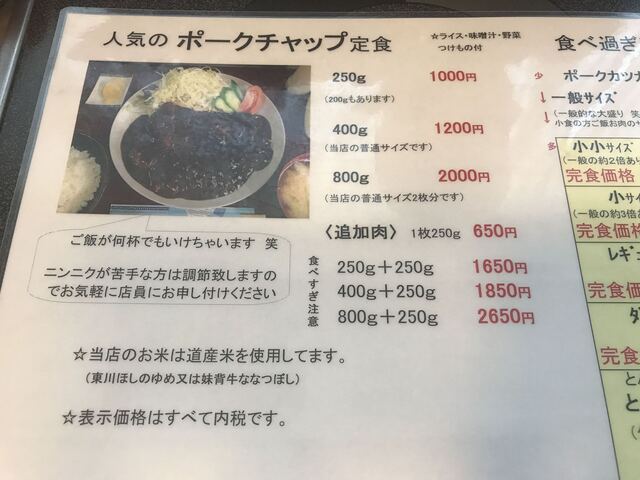 人気の ポークチャップ定食
☆ライス・味噌汁・野菜
つけもの付
250g 1000円
(200gもあります)
400g 1200円
(当店の普通サイズです)
800g 2000円
(当店の普通サイズ2枚分です)
〈追加肉〉 1枚250g 650円
食べすぎ注意
250g＋250g 1650円
400g＋250g 1850円
800g＋250g 2650円
ご飯が何杯でもいけちゃいます 笑
ニンニクが苦手な方は調節致しますの
でお気軽に店員にお申し付けください
☆当店のお米は道産米を使用してます。
(東川ほしのゆめ又は妹背牛ななつぼし)
☆表示価格はすべて内税です。
食べ過ぎ
少 ポークカツ
↓ 一般サイズ
↓ (一般的な大盛り 笑
小食の方ご飯お肉の
多
小小サイズ
(一般の約2倍あ
完食価格
小サイ
(一般の約3倍
完食価格
レギ
完食価
完食
と